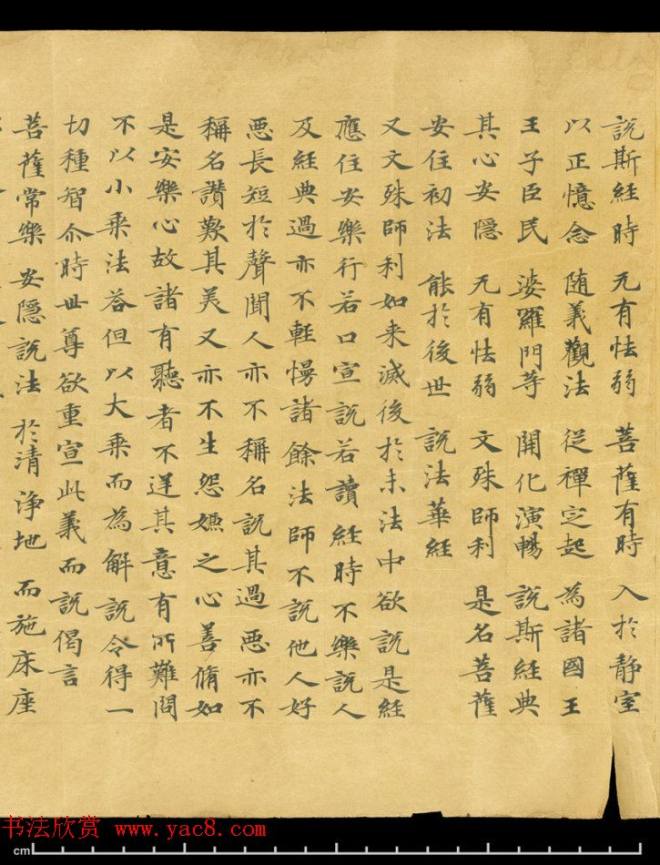 說斯經時 无有怯弱 菩薩有時 入於靜室
以正憶念 随義觀法 従禪定起 為諸國王
王子臣民 婆羅門等 開化演暢 說斯經典
其心安隱 无有怯弱 文殊師利 是名菩薩
安住初法 能於後世 說法華經
又文殊師利如来滅後於末法中欲說是經
應住安樂行若口宣說若讀經時不樂說人
及經典過亦不輕慢諸餘法師不說他人好
惡長短於聲聞人亦不稱名說其過惡亦不
稱名讚歎其美又亦不生怨嫌之心善脩如
是安樂心故諸有聽者不逆其意有所難問
不以小乘法荅但以大乘而為解說令得一
切種智尒時世尊欲重宣此義而說偈言
菩薩常樂 安隱說法 於清淨地 而施床座
书法欣赏 www.yac8.com
cm